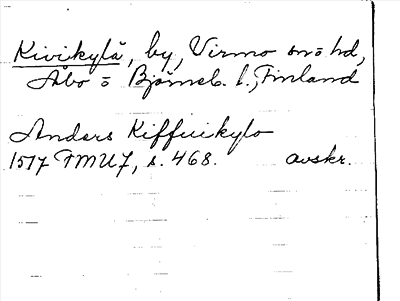 Kivikylä, by, Virmo sn o hd,
Åbo o Björneb. l., Finland
Anders Kiffuikylo
1517 FMU 7, s. 468. avskr.